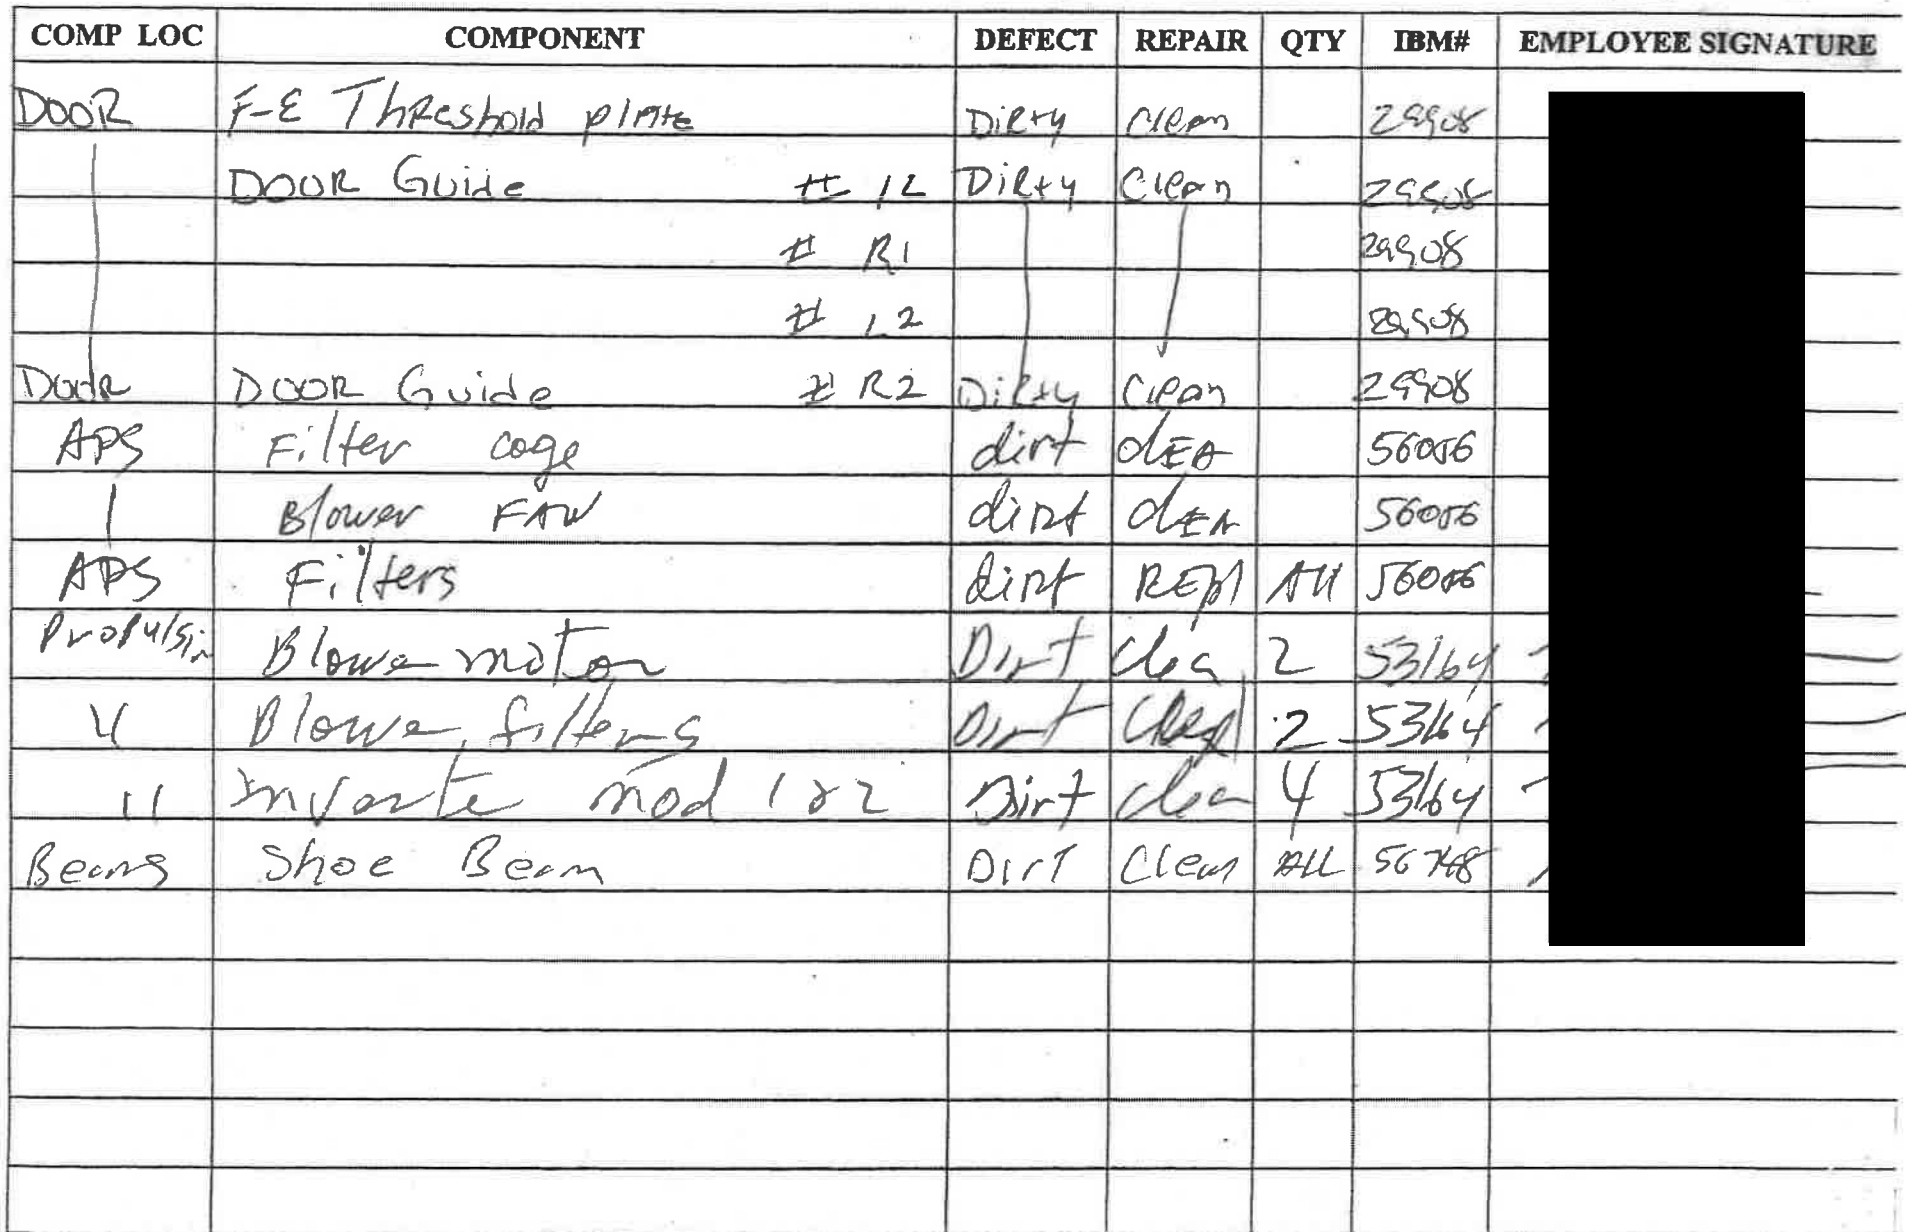 COMP LOC COMPONENT DEFECT REPAIR QTY IBM# EMPLOYEE SIGNATURE
DOOR F-E Threshold plate Dirty Clean 29908
DOOR Guide # Dirty Clean 29908
# R1 29908
# L2 29908
Door DOOR Guide # R2 Dirty Clean 29908
APS Filter cage dirt 56056
Blower FAN dirt 56056
APS Filters dirt REPl All 56056
Propulsin Blowe motor Dirt Clea 2 53164
" Blowe filters Dirt 2 53164
" Inverte mod 1 & 2 Dirt clea 4 53164
Beams Shoe Beam Dirt Clean ALL